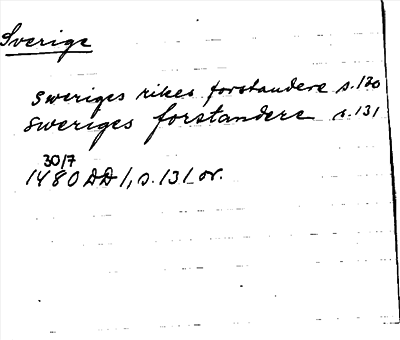 Sverige
sweriges rikes forstandere s.130
sweriges forstandere s.131
30/7
1480 DD1, s.131 or.